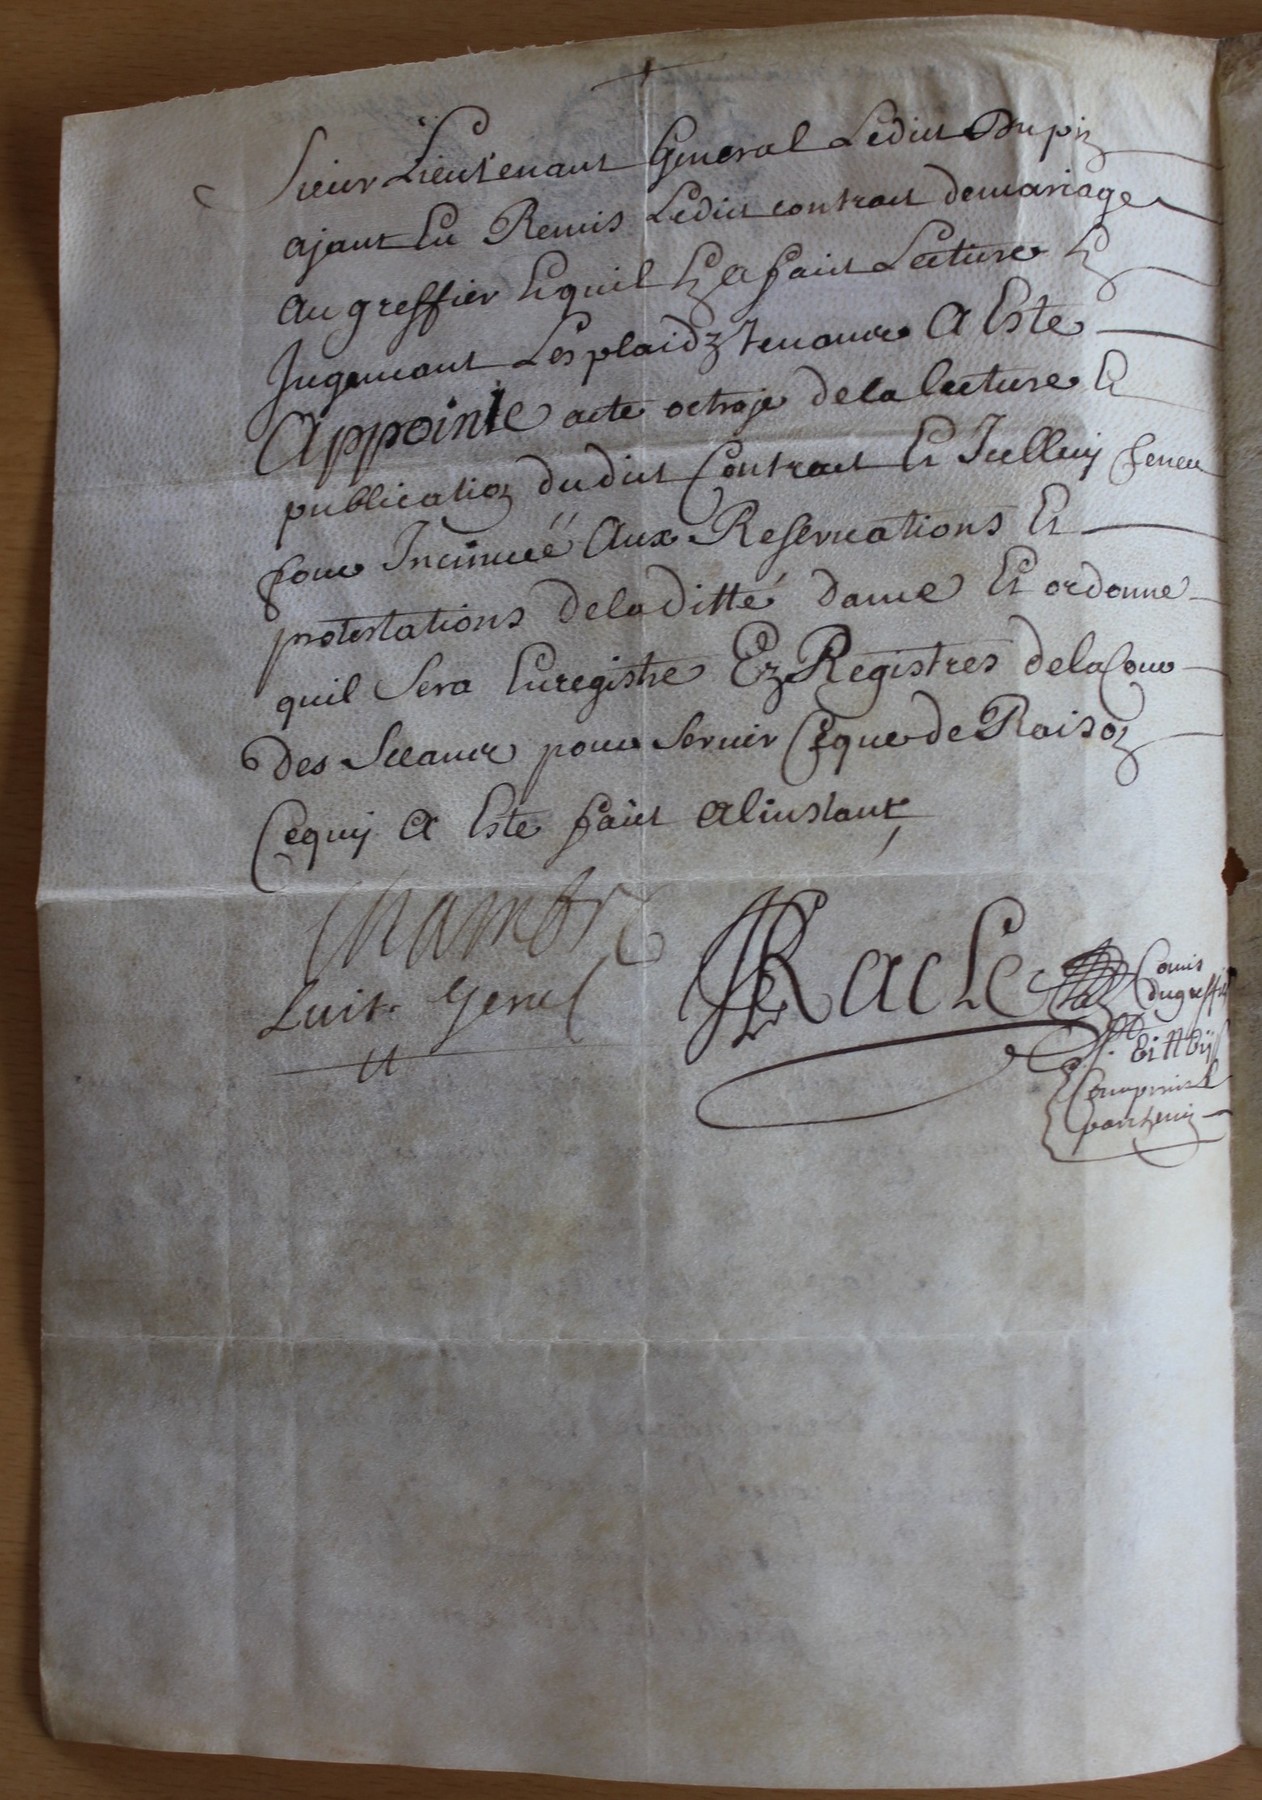 Sieur Lieutenant General Ledict Dupin
ajant En Remis Ledict contract demariage
Au greffier Et quil En a faict Lecture Et
Jugemant Les plaidz tenance A Este
Appointe acte octroje dela lecture Et
publication dudict Contract Et Icelluy teneu
pour Incinueé Aux Reseruations Et
protestations deladitté dame Et ordonne
quil Sera Enregistre Ez Registres delaCour
Des Seance pour Seruir Ceque de Raison
Cequy A Este faict Alinstant
Chambre
Luit. Genel
Racle
Comis
dugreffe
Comprins le
parchemin